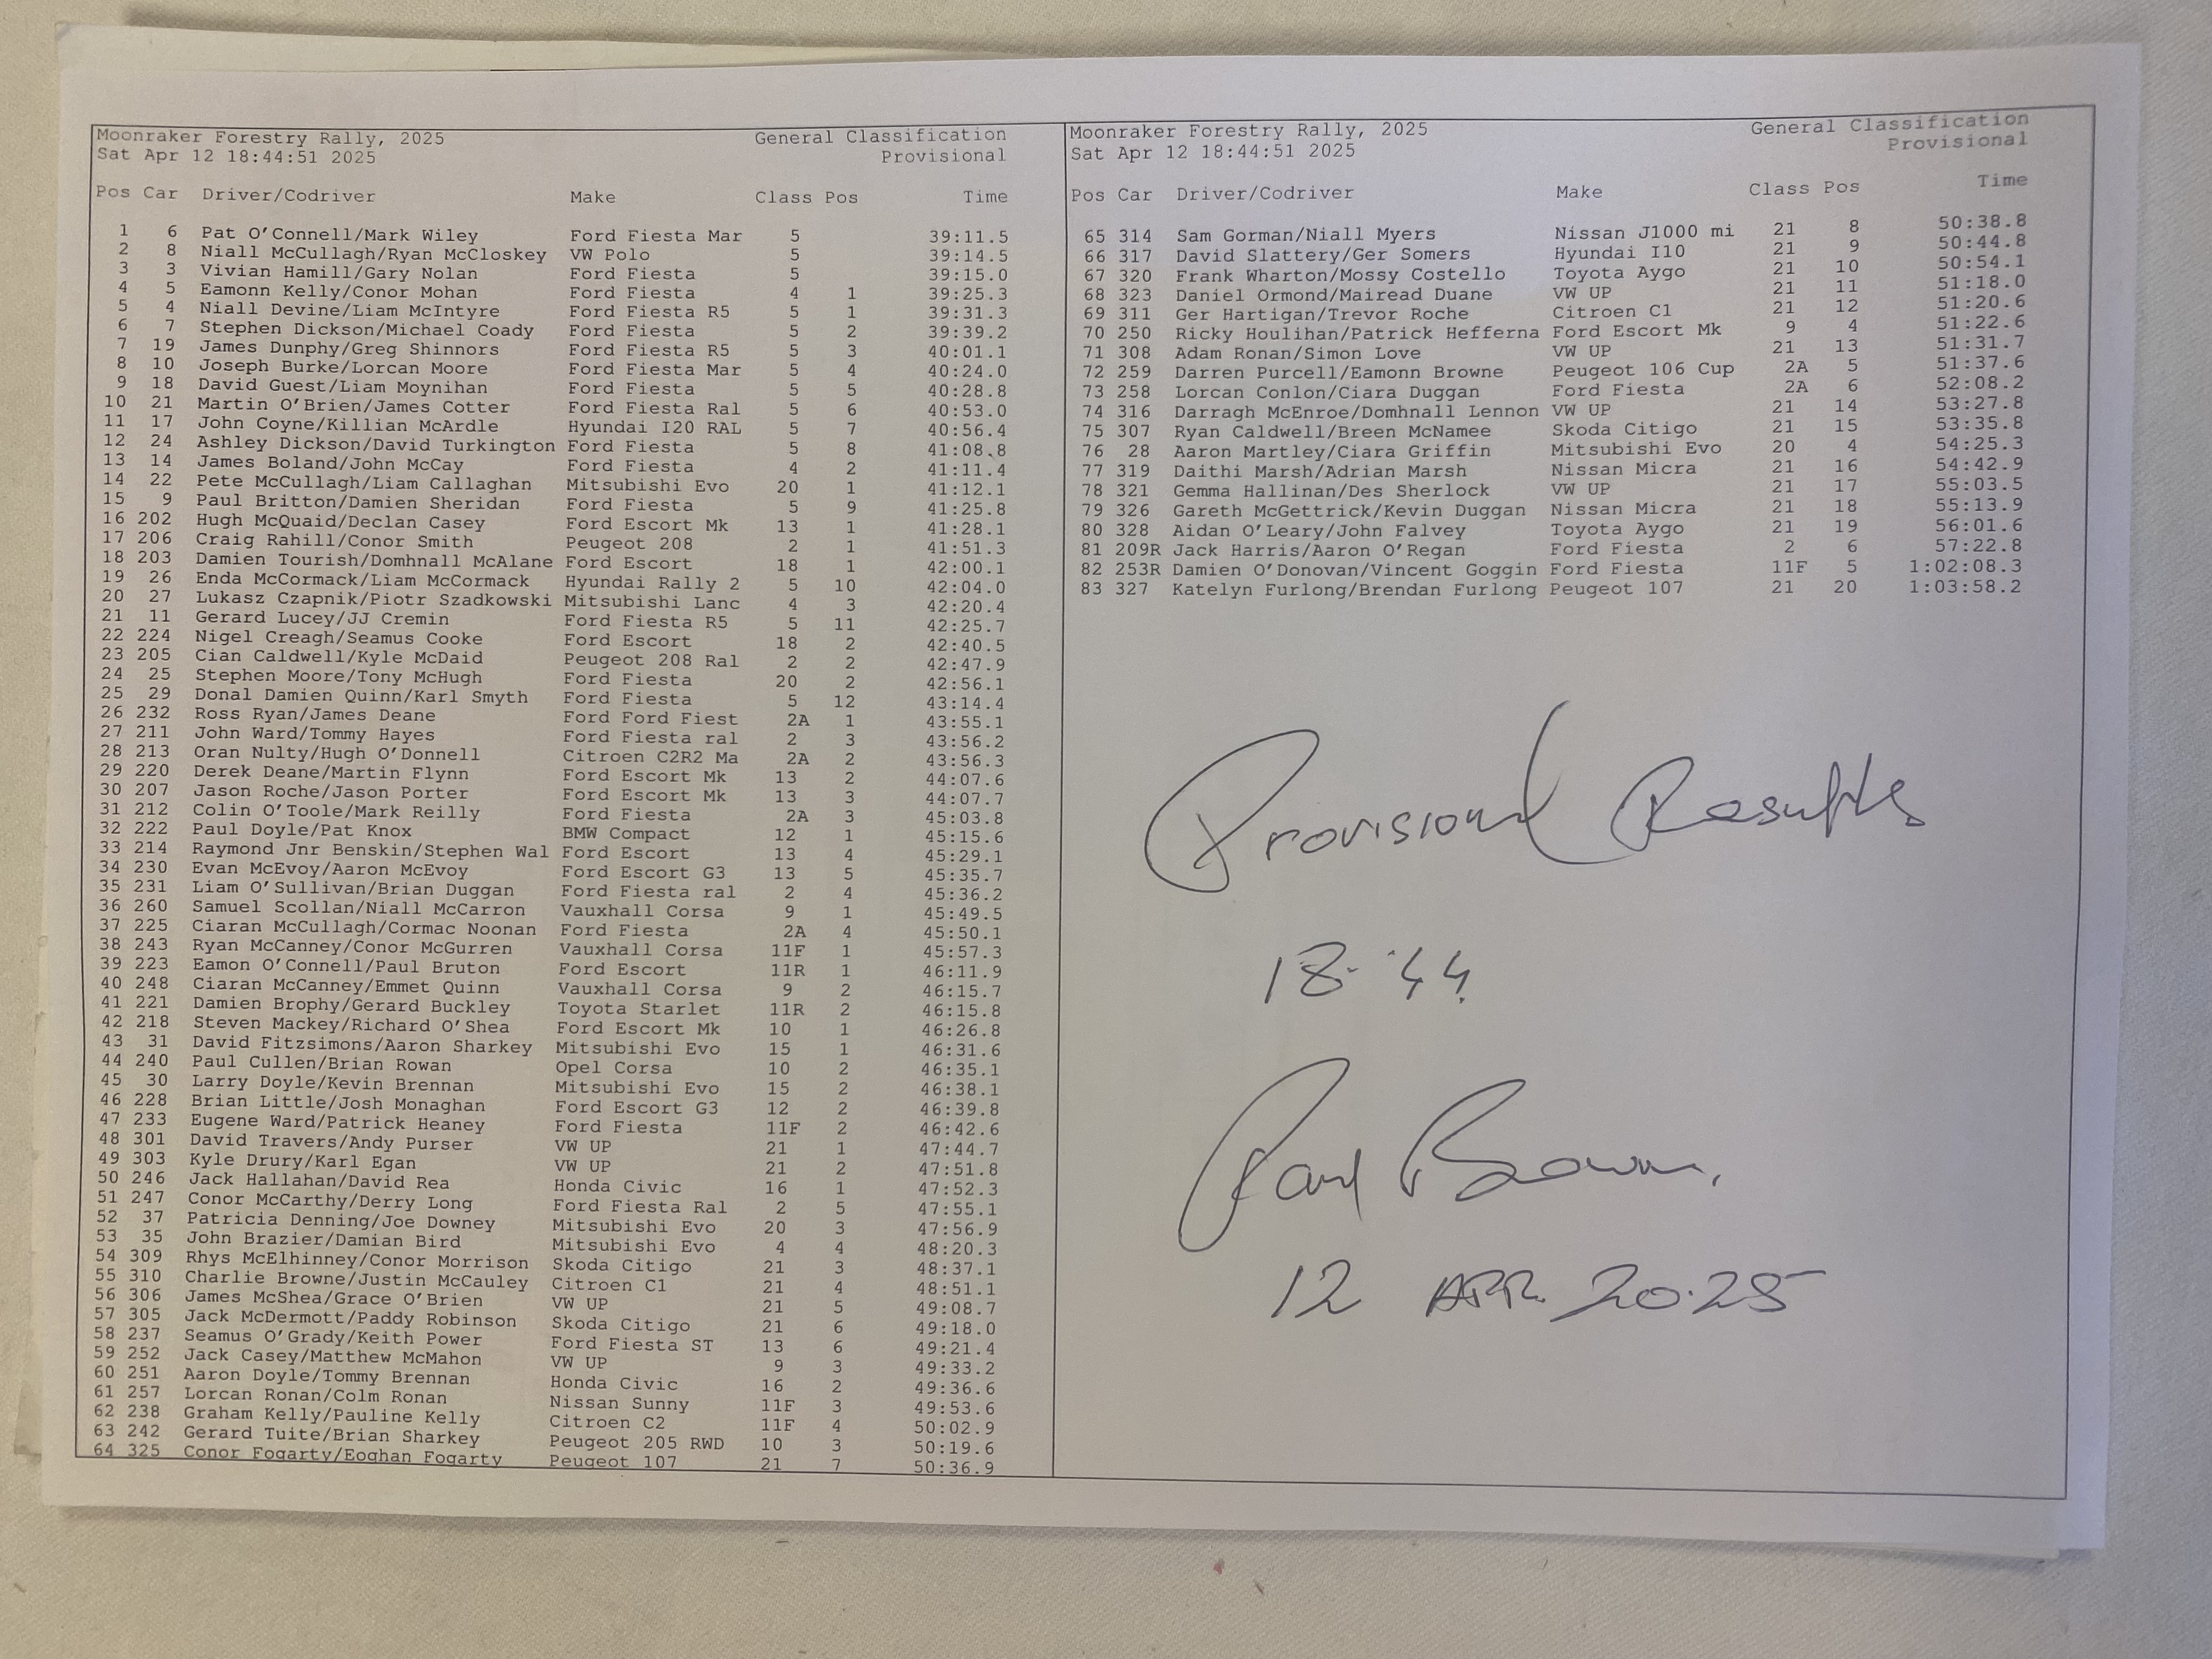 Moonraker Forestry Rally, 2025 General Classification
Sat Apr 12 18:44:51 2025 Provisional
Pos Car Driver/Codriver Make Class Pos Time
1 6 Pat O'Connell/Mark Wiley Ford Fiesta Mar 5 39:11.5
2 8 Niall McCullagh/Ryan McCloskey VW Polo 5 39:14.5
3 3 Vivian Hamill/Gary Nolan Ford Fiesta 5 39:15.0
4 5 Eamonn Kelly/Conor Mohan Ford Fiesta 4 1 39:25.3
5 4 Niall Devine/Liam McIntyre Ford Fiesta R5 5 1 39:31.3
6 7 Stephen Dickson/Michael Coady Ford Fiesta 5 2 39:39.2
7 19 James Dunphy/Greg Shinnors Ford Fiesta R5 5 3 40:01.1
8 10 Joseph Burke/Lorcan Moore Ford Fiesta Mar 5 4 40:24.0
9 18 David Guest/Liam Moynihan Ford Fiesta 5 5 40:28.8
10 21 Martin O'Brien/James Cotter Ford Fiesta Ral 5 6 40:53.0
11 17 John Coyne/Killian McArdle Hyundai I20 RAL 5 7 40:56.4
12 24 Ashley Dickson/David Turkington Ford Fiesta 5 8 41:08.8
13 14 James Boland/John McCay Ford Fiesta 4 2 41:11.4
14 22 Pete McCullagh/Liam Callaghan Mitsubishi Evo 20 1 41:12.1
15 9 Paul Britton/Damien Sheridan Ford Fiesta 5 9 41:25.8
16 202 Hugh McQuaid/Declan Casey Ford Escort Mk 13 1 41:28.1
17 206 Craig Rahill/Conor Smith Peugeot 208 2 1 41:51.3
18 203 Damien Tourish/Domhnall McAlane Ford Escort 18 1 42:00.1
19 26 Enda McCormack/Liam McCormack Hyundai Rally 2 5 10 42:04.0
20 27 Lukasz Czapnik/Piotr Szadkowski Mitsubishi Lanc 4 3 42:20.4
21 11 Gerard Lucey/JJ Cremin Ford Fiesta R5 5 11 42:25.7
22 224 Nigel Creagh/Seamus Cooke Ford Escort 18 2 42:40.5
23 205 Cian Caldwell/Kyle McDaid Peugeot 208 Ral 2 2 42:47.9
24 25 Stephen Moore/Tony McHugh Ford Fiesta 20 2 42:56.1
25 29 Donal Damien Quinn/Karl Smyth Ford Fiesta 5 12 43:14.4
26 232 Ross Ryan/James Deane Ford Ford Fiest 2A 1 43:55.1
27 211 John Ward/Tommy Hayes Ford Fiesta ral 2 3 43:56.2
28 213 Oran Nulty/Hugh O'Donnell Citroen C2R2 Ma 2A 2 43:56.3
29 220 Derek Deane/Martin Flynn Ford Escort Mk 13 2 44:07.6
30 207 Jason Roche/Jason Porter Ford Escort Mk 13 3 44:07.7
31 212 Colin O'Toole/Mark Reilly Ford Fiesta 2A 3 45:03.8
32 222 Paul Doyle/Pat Knox BMW Compact 12 1 45:15.6
33 214 Raymond Jnr Benskin/Stephen Wal Ford Escort 13 4 45:29.1
34 230 Evan McEvoy/Aaron McEvoy Ford Escort G3 13 5 45:35.7
35 231 Liam O'Sullivan/Brian Duggan Ford Fiesta ral 2 4 45:36.2
36 260 Samuel Scollan/Niall McCarron Vauxhall Corsa 9 1 45:49.5
37 225 Ciaran McCullagh/Cormac Noonan Ford Fiesta 2A 4 45:50.1
38 243 Ryan McCanney/Conor McGurren Vauxhall Corsa 11F 1 45:57.3
39 223 Eamon O'Connell/Paul Bruton Ford Escort 11R 1 46:11.9
40 248 Ciaran McCanney/Emmet Quinn Vauxhall Corsa 9 2 46:15.7
41 221 Damien Brophy/Gerard Buckley Toyota Starlet 11R 2 46:15.8
42 218 Steven Mackey/Richard O'Shea Ford Escort Mk 10 1 46:26.8
43 31 David Fitzsimons/Aaron Sharkey Mitsubishi Evo 15 1 46:31.6
44 240 Paul Cullen/Brian Rowan Opel Corsa 10 2 46:35.1
45 30 Larry Doyle/Kevin Brennan Mitsubishi Evo 15 2 46:38.1
46 228 Brian Little/Josh Monaghan Ford Escort G3 12 2 46:39.8
47 233 Eugene Ward/Patrick Heaney Ford Fiesta 11F 2 46:42.6
48 301 David Travers/Andy Purser VW UP 21 1 47:44.7
49 303 Kyle Drury/Karl Egan VW UP 21 2 47:51.8
50 246 Jack Hallahan/David Rea Honda Civic 16 1 47:52.3
51 247 Conor McCarthy/Derry Long Ford Fiesta Ral 2 5 47:55.1
52 37 Patricia Denning/Joe Downey Mitsubishi Evo 20 3 47:56.9
53 35 John Brazier/Damian Bird Mitsubishi Evo 4 4 48:20.3
54 309 Rhys McElhinney/Conor Morrison Skoda Citigo 21 3 48:37.1
55 310 Charlie Browne/Justin McCauley Citroen C1 21 4 48:51.1
56 306 James McShea/Grace O'Brien VW UP 21 5 49:08.7
57 305 Jack McDermott/Paddy Robinson Skoda Citigo 21 6 49:18.0
58 237 Seamus O'Grady/Keith Power Ford Fiesta ST 13 6 49:21.4
59 252 Jack Casey/Matthew McMahon VW UP 9 3 49:33.2
60 251 Aaron Doyle/Tommy Brennan Honda Civic 16 2 49:36.6
61 257 Lorcan Ronan/Colm Ronan Nissan Sunny 11F 3 49:53.6
62 238 Graham Kelly/Pauline Kelly Citroen C2 11F 4 50:02.9
63 242 Gerard Tuite/Brian Sharkey Peugeot 205 RWD 10 3 50:19.6
64 325 Conor Fogarty/Eoghan Fogarty Peugeot 107 21 7 50:36.9
Moonraker Forestry Rally, 2025 General Classification
Sat Apr 12 18:44:51 2025 Provisional
Pos Car Driver/Codriver Make Class Pos Time
65 314 Sam Gorman/Niall Myers Nissan J1000 mi 21 8 50:38.8
66 317 David Slattery/Ger Somers Hyundai I10 21 9 50:44.8
67 320 Frank Wharton/Mossy Costello Toyota Aygo 21 10 50:54.1
68 323 Daniel Ormond/Mairead Duane VW UP 21 11 51:18.0
69 311 Ger Hartigan/Trevor Roche Citroen C1 21 12 51:20.6
70 250 Ricky Houlihan/Patrick Hefferna Ford Escort Mk 9 4 51:22.6
71 308 Adam Ronan/Simon Love VW UP 21 13 51:31.7
72 259 Darren Purcell/Eamonn Browne Peugeot 106 Cup 2A 5 51:37.6
73 258 Lorcan Conlon/Ciara Duggan Ford Fiesta 2A 6 52:08.2
74 316 Darragh McEnroe/Domhnall Lennon VW UP 21 14 53:27.8
75 307 Ryan Caldwell/Breen McNamee Skoda Citigo 21 15 53:35.8
76 28 Aaron Martley/Ciara Griffin Mitsubishi Evo 20 4 54:25.3
77 319 Daithi Marsh/Adrian Marsh Nissan Micra 21 16 54:42.9
78 321 Gemma Hallinan/Des Sherlock VW UP 21 17 55:03.5
79 326 Gareth McGettrick/Kevin Duggan Nissan Micra 21 18 55:13.9
80 328 Aidan O'Leary/John Falvey Toyota Aygo 21 19 56:01.6
81 209R Jack Harris/Aaron O'Regan Ford Fiesta 2 6 57:22.8
82 253R Damien O'Donovan/Vincent Goggin Ford Fiesta 11F 5 1:02:08.3
83 327 Katelyn Furlong/Brendan Furlong Peugeot 107 21 20 1:03:58.2
Provisional Results
18:44
Paul Brown.
12 APR 2025